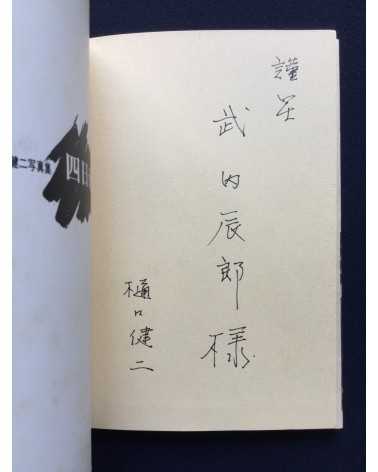 謹呈
武内辰郎様
樋口健二
健二写真集
四日